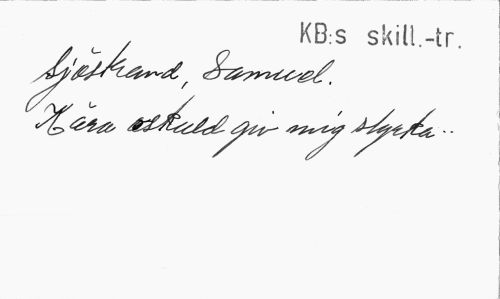 KB:s skill.-tr.
Sjöstrand, Samuel.
Kära oskuld giv mig styrka..